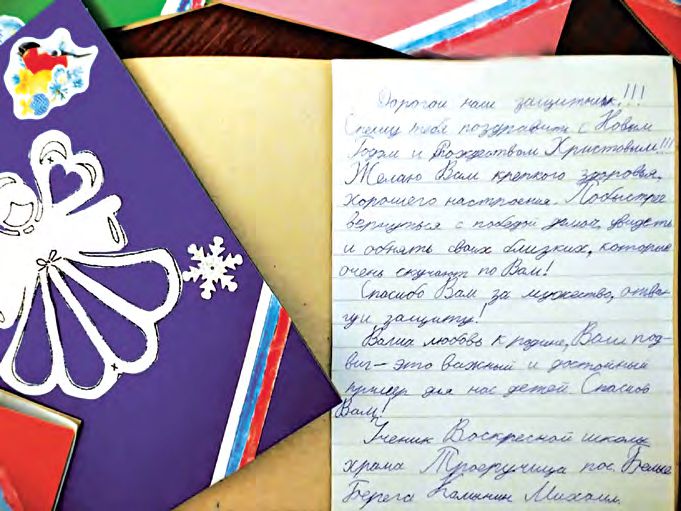 Дорогой наш защитник!!!
Спешу тебя поздравить с Новым
Годом и Рождеством Христовым!!!
Желаю Вам крепкого здоровья,
хорошего настроения. Побыстрее
вернуться с победой домой, увидеть
и обнять своих близких, которые
очень скучают по Вам!
Спасибо Вам за мужество, отва-
гу и защиту!
Ваша любовь к родине, Ваш под-
виг - это важный и достойный
пример для нас детей. Спасибо
Вам!
Ученик Воскресной школы
храма Троеручица пос. Белые
Берега Калинин Михаил.